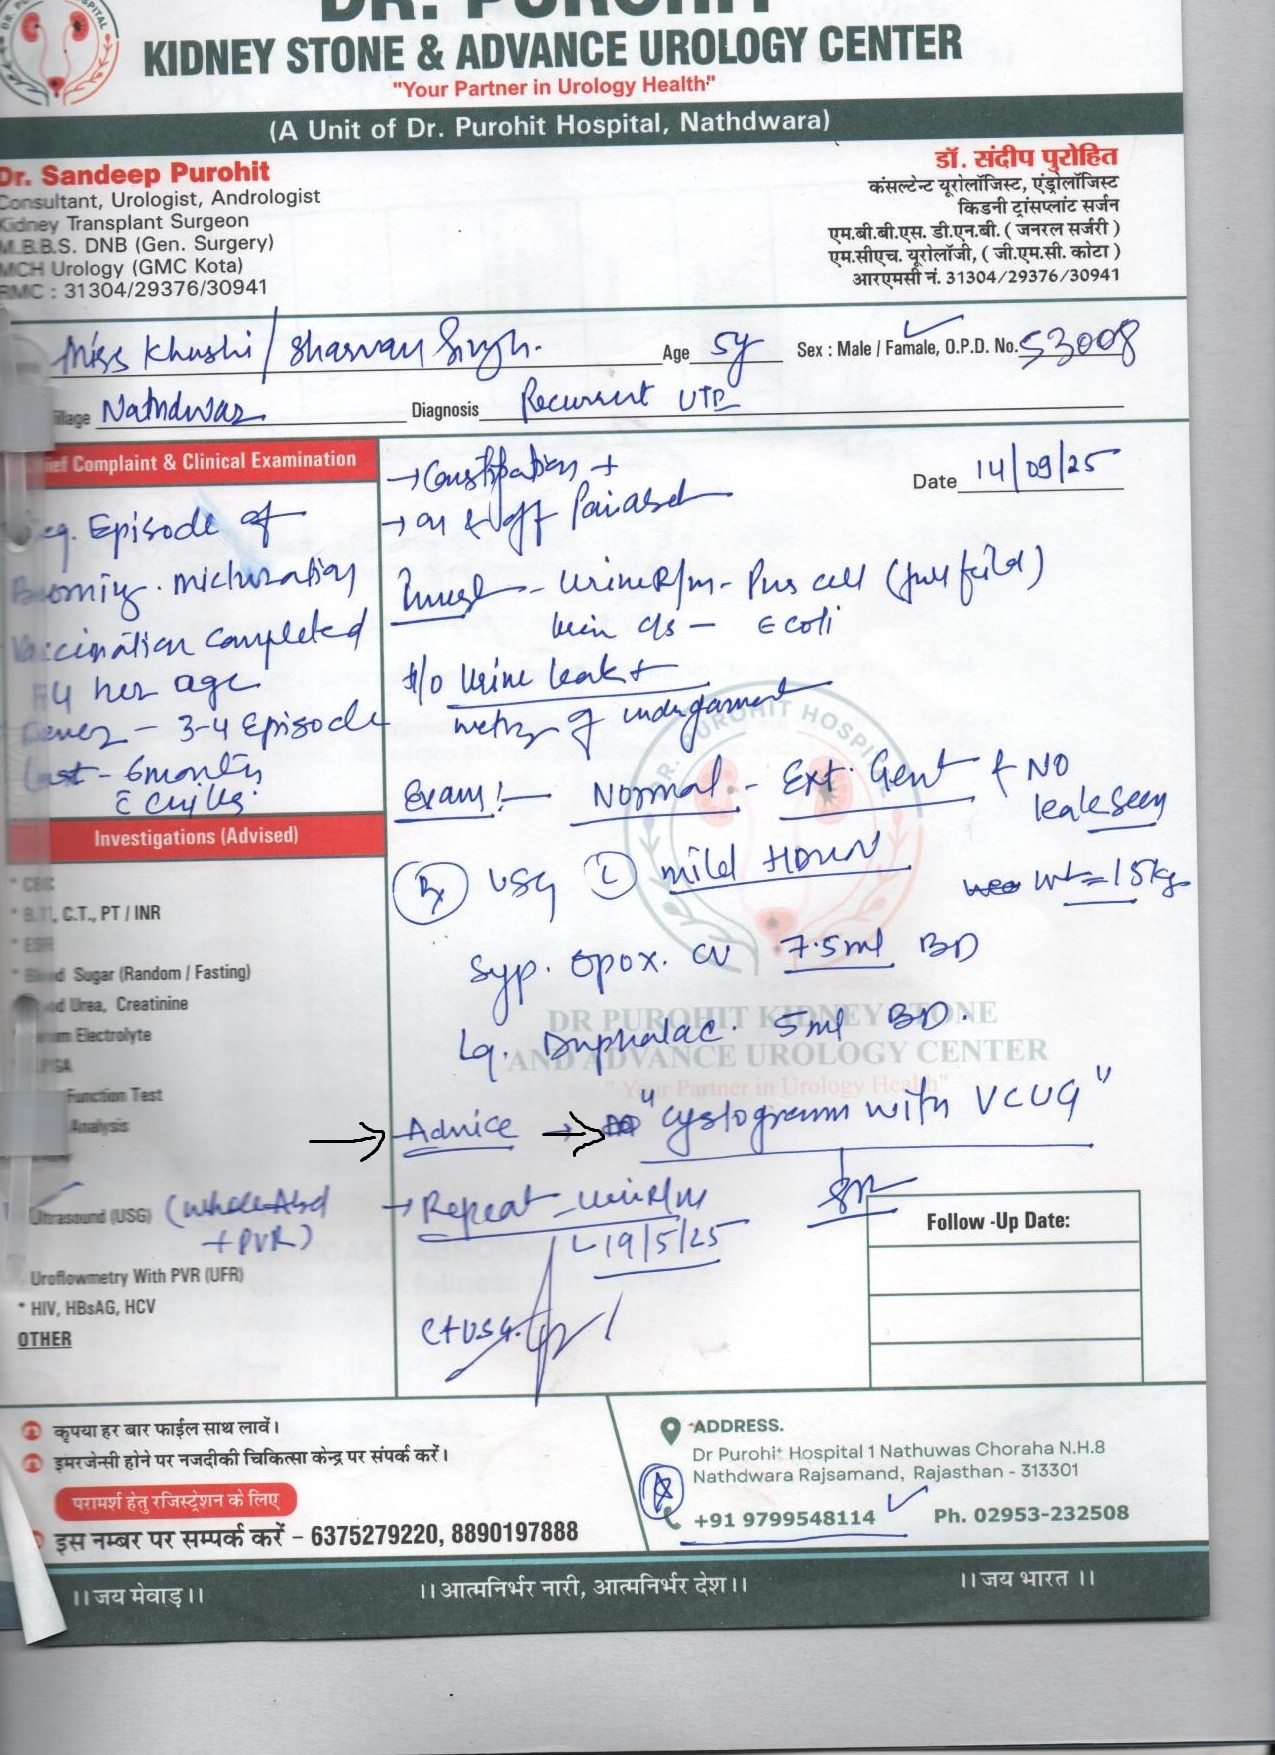 DR. PUROHIT
KIDNEY STONE & ADVANCE UROLOGY CENTER
"Your Partner in Urology Health"
(A Unit of Dr. Purohit Hospital, Nathdwara)
Dr. Sandeep Purohit
Consultant, Urologist, Andrologist
Kidney Transplant Surgeon
M.B.B.S. DNB (Gen. Surgery)
MCH Urology (GMC Kota)
RMC : 31304/29376/30941
डॉ. संदीप पुरोहित
कंसल्टेन्ट यूरोलॉजिस्ट, एंड्रोलॉजिस्ट
किडनी ट्रांसप्लांट सर्जन
एम.बी.बी.एस. डी.एन.बी. ( जनरल सर्जरी )
एम.सीएच. यूरोलॉजी, ( जी.एम.सी. कोटा )
आरएमसी नं. 31304/29376/30941
Miss Khushi / Sharvan Singh. Age 5y Sex : Male / Famale, O.P.D. No. 53008
Village Nathdwar Diagnosis Recurrent UTI
Chief Complaint & Clinical Examination
Episode of
Burning micturation
Vaccination completed
her age
Fever - 3-4 Episode
Last - 6 months
c chills.
Date 14/09/25
→ Constipation +
→ on & off Pain abd
Invest - Urine R/m - Pus cell (full feild)
Urin c/s - E coli
H/o Urine leak +
wetting of undergarment
Exam :- Normal - Ext. Gent & NO
leak seen
Rx USG L mild HDUN
wt = 15kg
Syp. opox. CV 7.5ml BD
Lq. Duphalac. 5ml BD.
Advice → "cystogram with VCUG"
→ Repeat - Urin R/m
19/5/25
c + USG.
Investigations (Advised)
* CBC
* B.T., C.T., PT / INR
* ESR
* Blood Sugar (Random / Fasting)
Blood Urea, Creatinine
Serum Electrolyte
Function Test
Analysis
Ultrasound (USG) (Whole Abd
+ PVR)
Uroflowmetry With PVR (UFR)
* HIV, HBsAG, HCV
OTHER
DR. PUROHIT HOSPITAL
DR PUROHIT KIDNEY STONE
AND ADVANCE UROLOGY CENTER
"Your Partner in Urology Health"
Follow -Up Date:
कृपया हर बार फाईल साथ लावें।
इमरजेन्सी होने पर नजदीकी चिकित्सा केन्द्र पर संपर्क करें।
परामर्श हेतु रजिस्ट्रेशन के लिए
इस नम्बर पर सम्पर्क करें – 6375279220, 8890197888
ADDRESS.
Dr Purohit Hospital 1 Nathuwas Choraha N.H.8
Nathdwara Rajsamand, Rajasthan - 313301
+91 9799548114 Ph. 02953-232508
।।जय मेवाड़।। ।।आत्मनिर्भर नारी, आत्मनिर्भर देश।। ।।जय भारत ।।